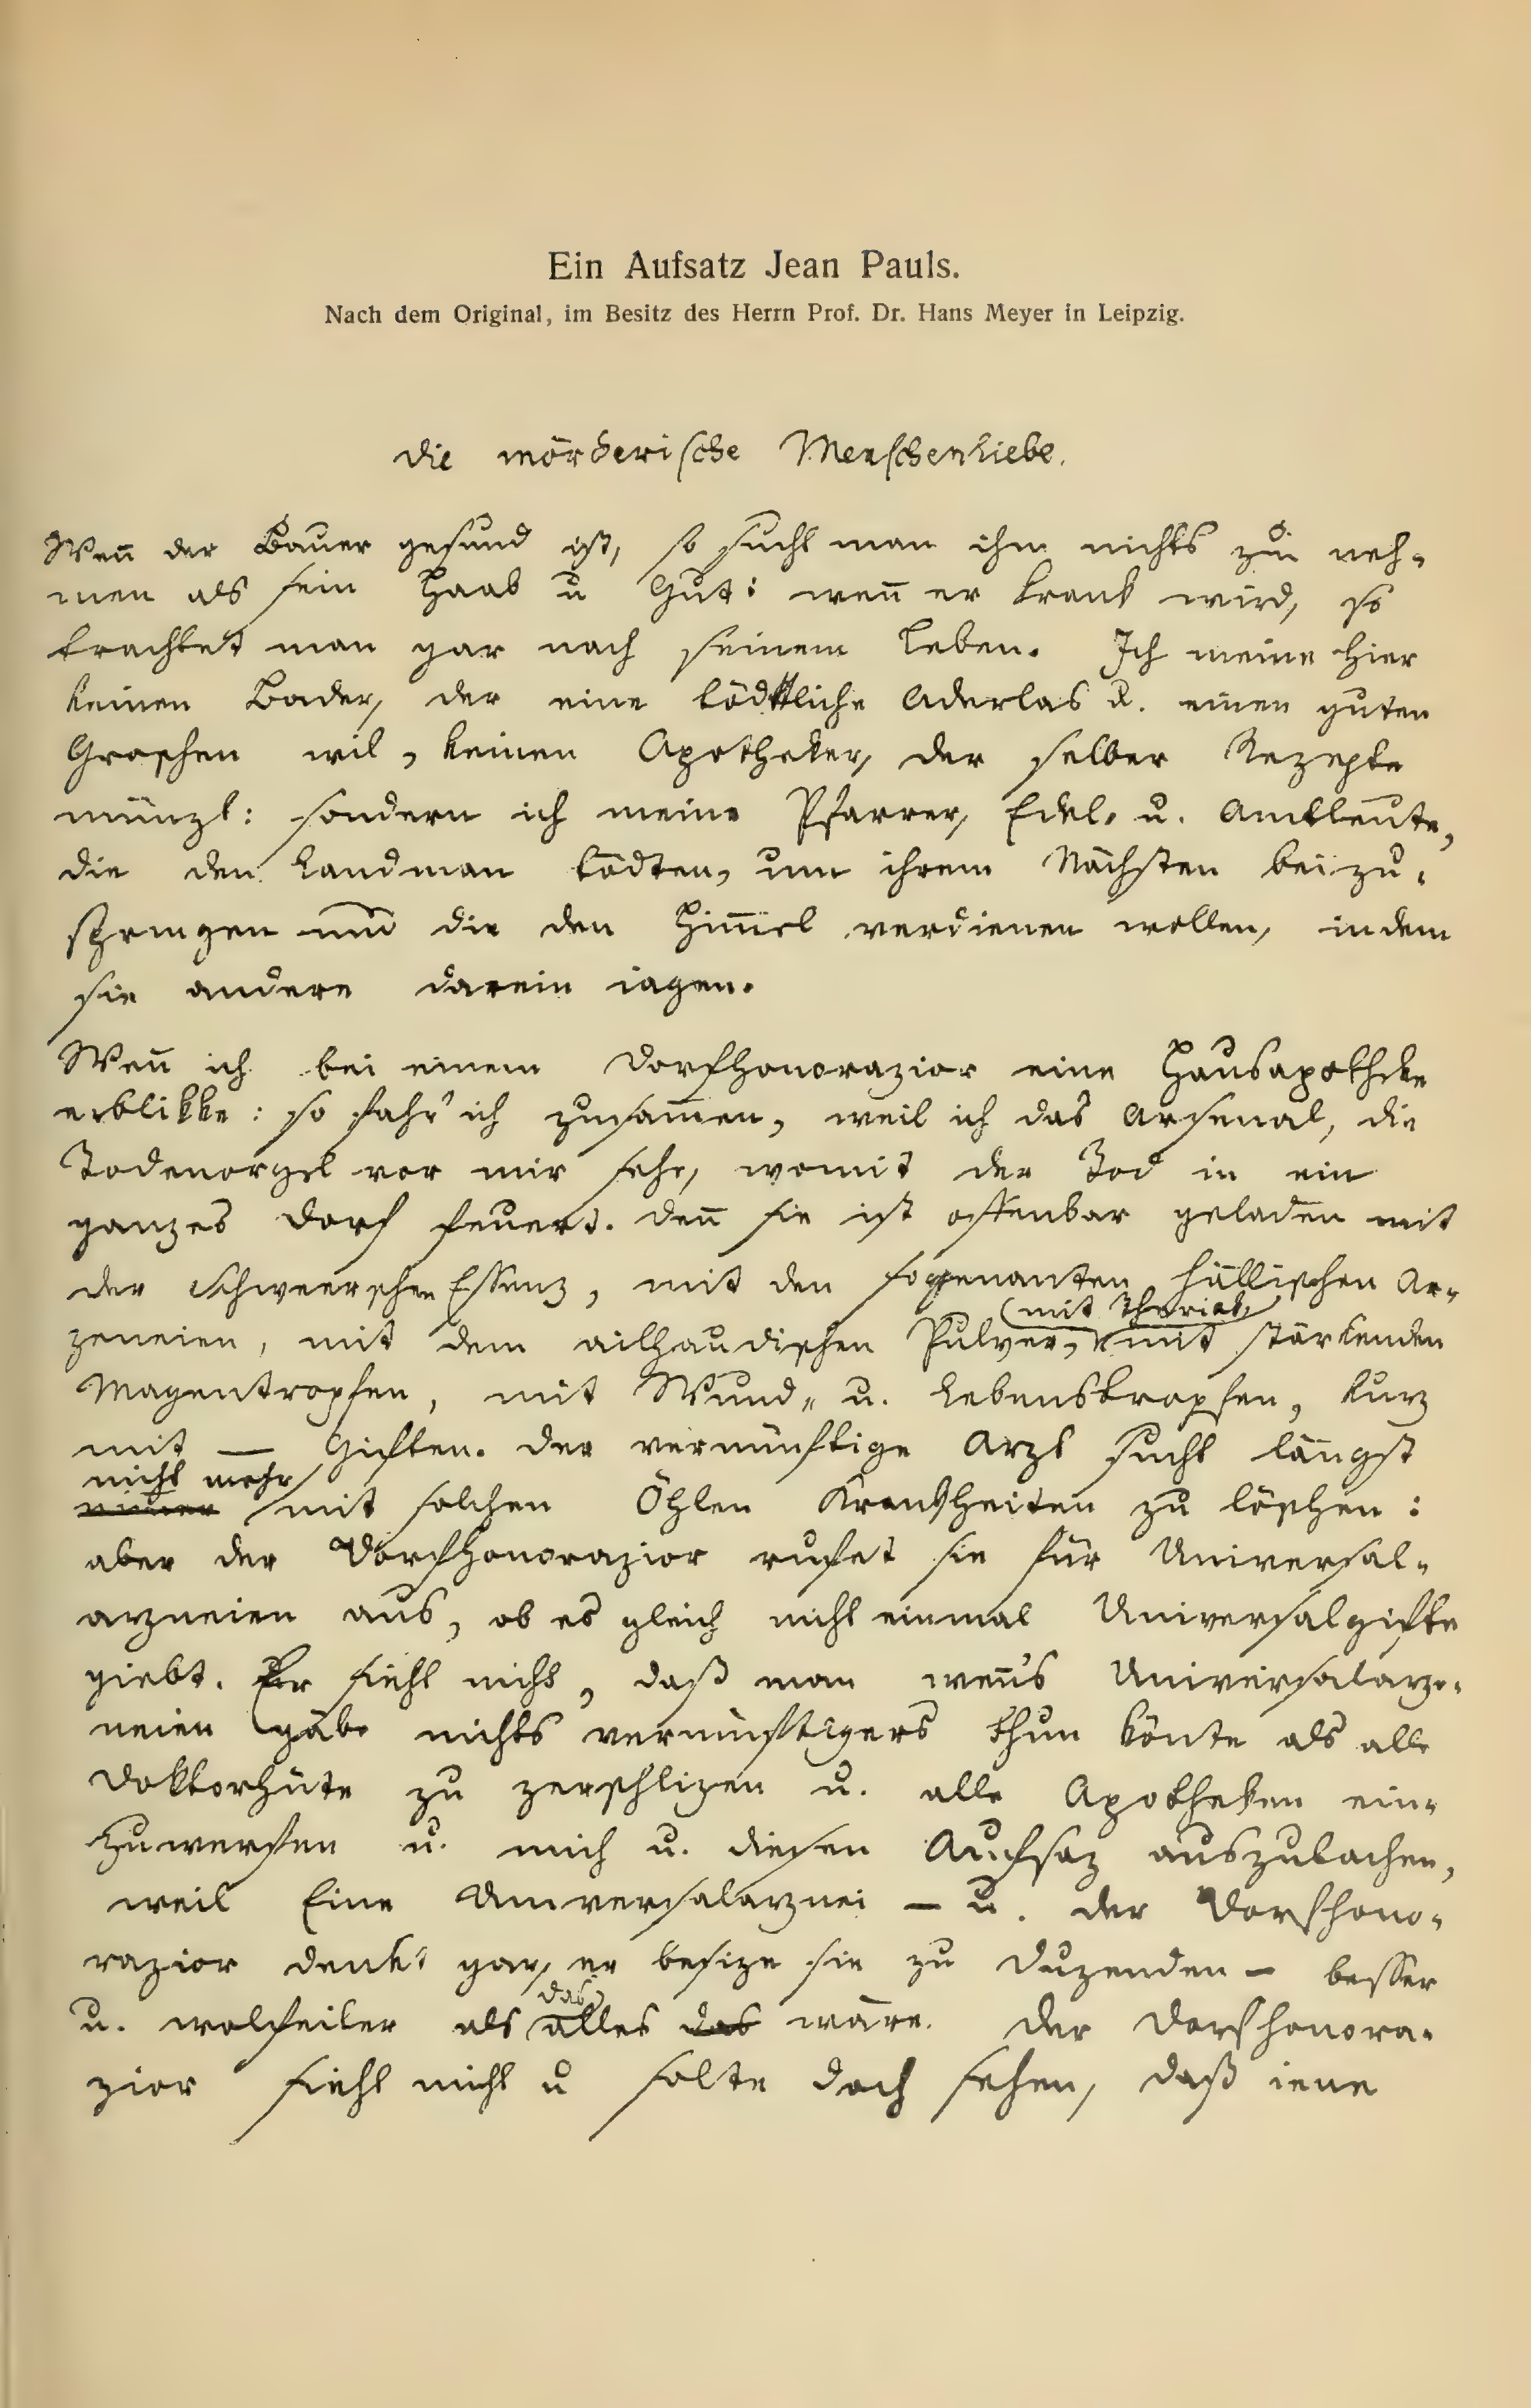 Ein Aufsatz Jean Pauls.
Nach dem Original, im Besitz des Herrn Prof. Dr. Hans Meyer in Leipzig.
Die mörderische Menschenliebe.
Weñ der Bauer gesund ist, so sucht man ihm nichts zu neh-
men als sein Haab u Gut: weñ er krank wird, so
trachtet man gar nach seinem Leben. Ich meine hier
keinen Bader, der eine tödtliche Aderlas u. einen guten
Groschen wil, keinen Apotheker, der selber Rezepte
münzt: sondern ich meine Pfarrer, Edel- u. Amtleute,
die den Landman tödten, um ihrem Nächsten beizu-
springen und die den Him̄el verdienen wollen, indem
sie andere darein iagen.
Weñ ich bei einem Dorfhonorazior eine Hausapotheke
erblikke: so fahr' ich zusam̄en, weil ich das Arsenal, die
Todenorgel vor mir sehe, womit der Tod in ein
ganzes Dorf feuert. Deñ sie ist offenbar geladen mit
der Schweerschen Essenz, mit den sogenanten hällischen Ar-
(mit Theriak,)
zeneien, mit dem ailhaudischen Pulver, mit stärkenden
Magentropfen, mit Wund- u. Lebenstropfen, kurz
mit — Giften. Der vernünftige Arzt sucht längst
nicht mehr
mit solchen Öhlen Krankheiten zu löschen:
aber der Dorfhonorazior rufet sie für Universal-
arzneien aus, ob es gleich nicht einmal Universalgifte
giebt. Er sieht nicht, daß man weñ's Universalarze-
neien gäbe nichts vernünftigers thun könte als alle
Doktorhüte zu zerschlizen u. alle Apotheken ein-
zuwerfen u. mich u. diesen Aufsaz auszulachen,
weil Eine Universalarznei – u. der Dorfhono-
razior denkt gar, er besize sie zu Duzenden – besser
das
u. wolfeiler als alles das wäre. Der Dorfhonora-
zior sieht nicht u solte doch sehen, daß iene